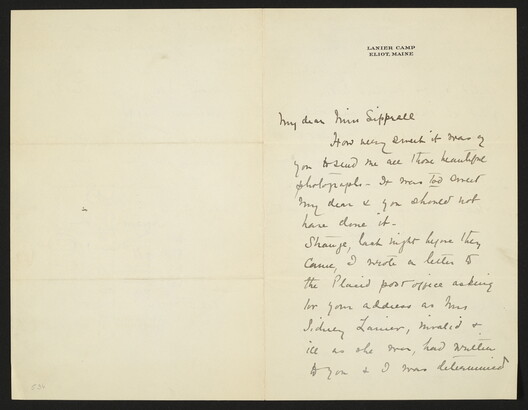 LANIER CAMP
ELIOT, MAINE
My dear Miss Sipprell
How very sweet it was of
you to send me all those beautiful
photographs - It was too sweet
my dear & you should not
have done it -
Strange, last night before they
came, I wrote a letter to
the Placid post office asking
for your address as Mrs
Sidney Lanier, invalid &
ill as she was, had written
to you & I was determined